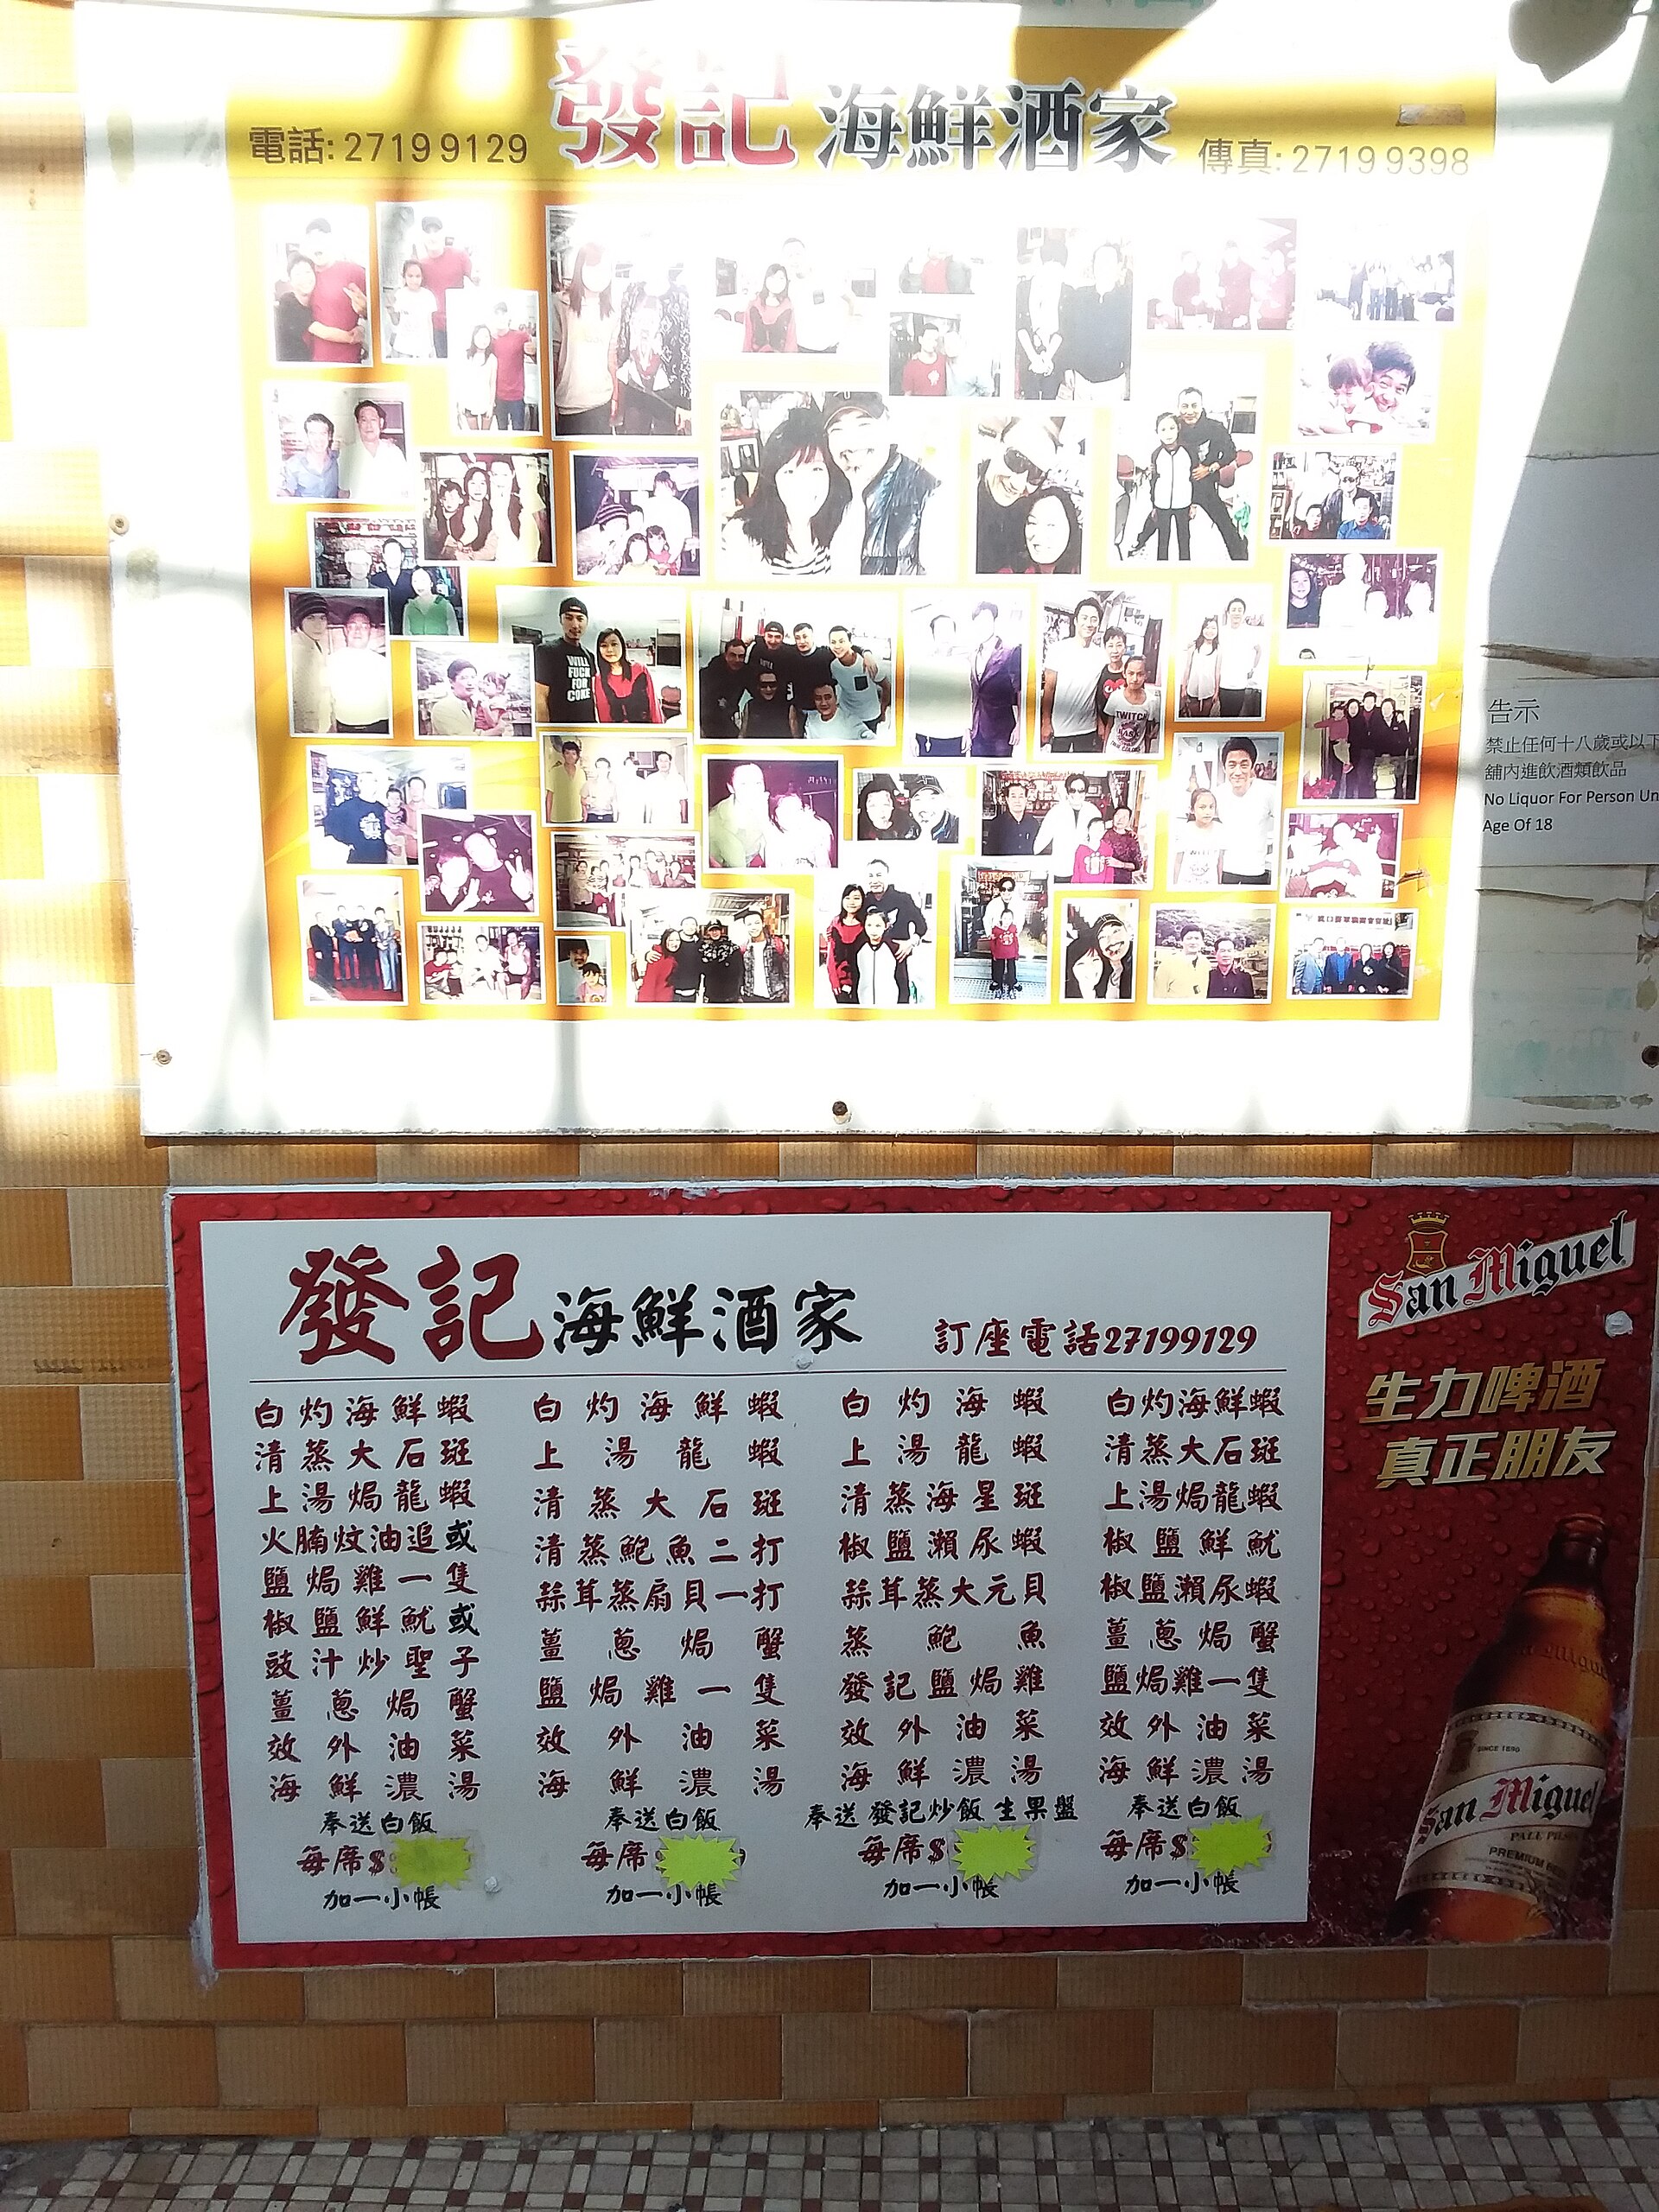 發記海鮮酒家
電話: 2719 9129
傳真: 2719 9398
WILL
FUCK
FOR
COKE
TWITCH
告示
禁止任何十八歲或以下
舖內進飲酒類飲品
No Liquor For Person Un
Age Of 18
發記海鮮酒家 訂座電話27199129
白灼海鮮蝦
清蒸大石斑
上湯焗龍蝦
火腩炆油追或
鹽焗雞一隻
椒鹽鮮魷或
豉汁炒聖子
薑蔥焗蟹
效外油菜
海鮮濃湯
奉送白飯
每席$
加一小帳
白灼海鮮蝦
上湯龍蝦
清蒸大石斑
清蒸鮑魚二打
蒜茸蒸扇貝一打
薑蔥焗蟹
鹽焗雞一隻
效外油菜
海鮮濃湯
奉送白飯
每席
加一小帳
白灼海蝦
上湯龍蝦
清蒸海星斑
椒鹽瀨尿蝦
蒜茸蒸大元貝
蒸鮑魚
發記鹽焗雞
效外油菜
海鮮濃湯
奉送 發記炒飯 生果盤
每席$
加一小帳
白灼海鮮蝦
清蒸大石斑
上湯焗龍蝦
椒鹽鮮魷
椒鹽瀨尿蝦
薑蔥焗蟹
鹽焗雞一隻
效外油菜
海鮮濃湯
奉送白飯
每席$
加一小帳
San Miguel
生力啤酒
真正朋友
SINCE 1890
San Miguel
PALE PILSEN
PREMIUM BEER